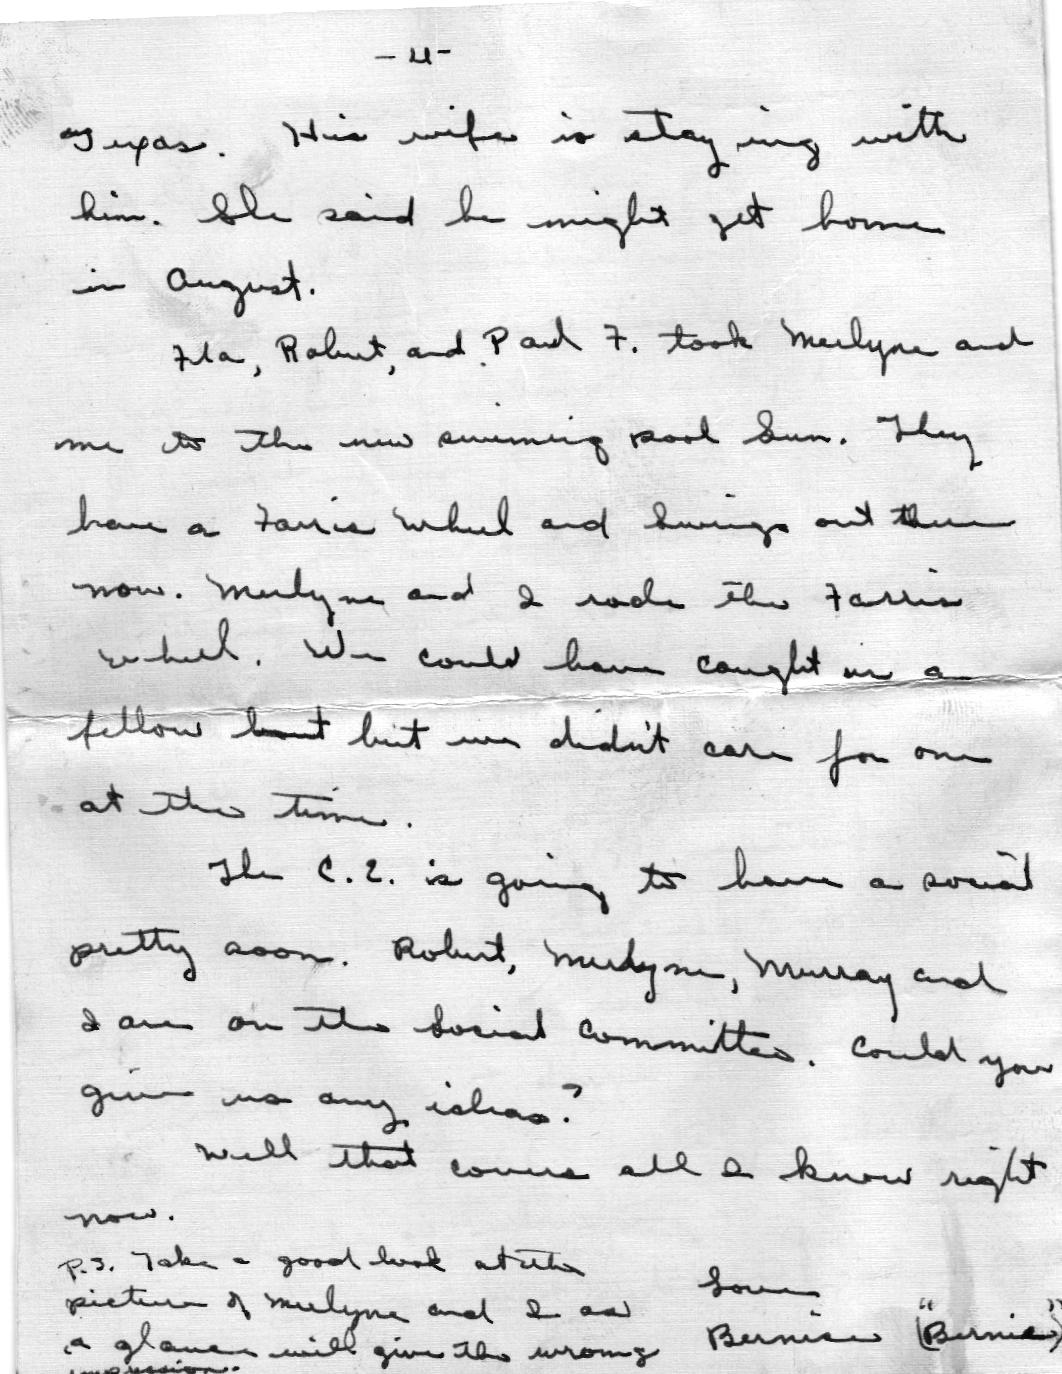 -4-
Texas. His wife is staying with
him. She said he might get home
in August.
Ila, Robert, and Paul F. took Merlyne and
me to the new swiming pool Sun. They
have a Farris Wheel and Swings out there
now. Merlyne and I rode the Farris
wheel. We could have caught us a
fellow but but we didn't care for one
at the time.
The C.E. is going to have a social
pretty soon. Robert, Merlyne, Murray and
I are on the Social Committee. Could you
give us any ideas?
Well that covers all I know right
now.
Love
Bernice ("Bernie")
P.S. Take a good look at the
picture of Merlyne and I as
a glance will give the wrong
impression.